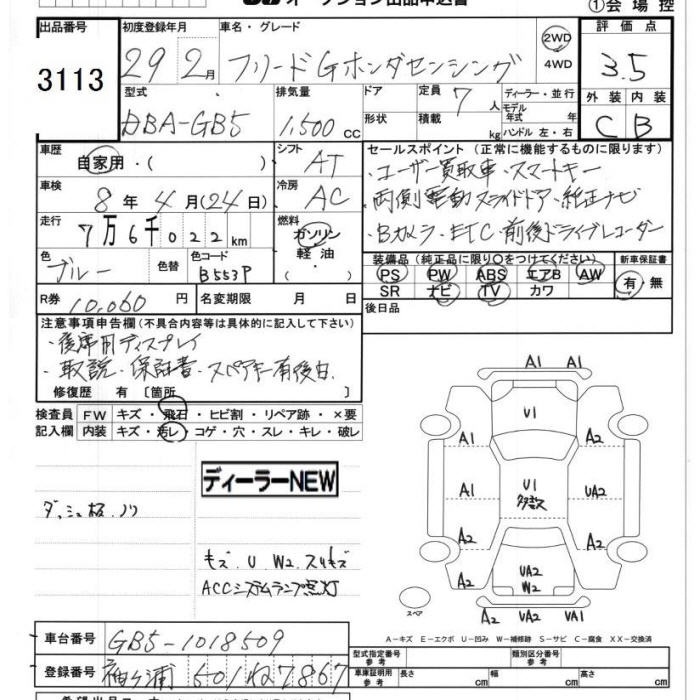 オークション出品申込書
①会場控
出品番号 3113
初度登録年月 29 2月
車名・グレード フリードGホンダセンシング
2WD
4WD
評価点 3.5
外装 C 内装 B
型式 DBA-GB5
排気量 1,500cc
ドア
形状
定員 7人
積載 kg
ディーラー・並行
モデル年式 年式
ハンドル 左・右
車歴 自家用・( )
シフト AT
車検 8年4月(24日)
冷房 AC
走行 7万6千022km
燃料 ガソリン
軽油
・( )
色 ブルー 色替 色コード B553P
R券 10,060円 名変期限 月 日
セールスポイント(正常に機能するものに限ります)
・ユーザー買取車・スマートキー
・両側電動スライドドア・純正ナビ
・Bカメラ・ETC・前後ドライブレコーダー
装備品(純正品に限り○をつけてください)
PS PW ABS エアB AW
SR ナビ TV カワ
新車保証書
有・無
後日品
注意事項申告欄(不具合内容等は具体的に記入して下さい)
・後席用ディスプレイ
・取説・保証書・スペアキー有後日
修復歴 有 〔箇所
検査員
記入欄
FW キズ・飛石・ヒビ割・リペア跡・×要
内装 キズ・汚レ・コゲ・穴・スレ・キレ・破レ
ディーラーNEW
ダッシュ板.ノリ
キズ.U.W2.スリキズ
ACCシステムランプ点灯
A1 A1
U1
A1 A2
A1 U1 UA2
多数ス
A2 A2
UA2
W2
A2 UA2 VA1
スペア
A-キズ E-エクボ U-凹み W-補修跡 S-サビ C-腐食 XX-交換済
車台番号 GB5-1018509
登録番号 袖ヶ浦 501 ね 7867
型式指定番号
参考
類別区分番号
参考
車庫証明用
参考
長さ cm 幅 cm 高さ cm